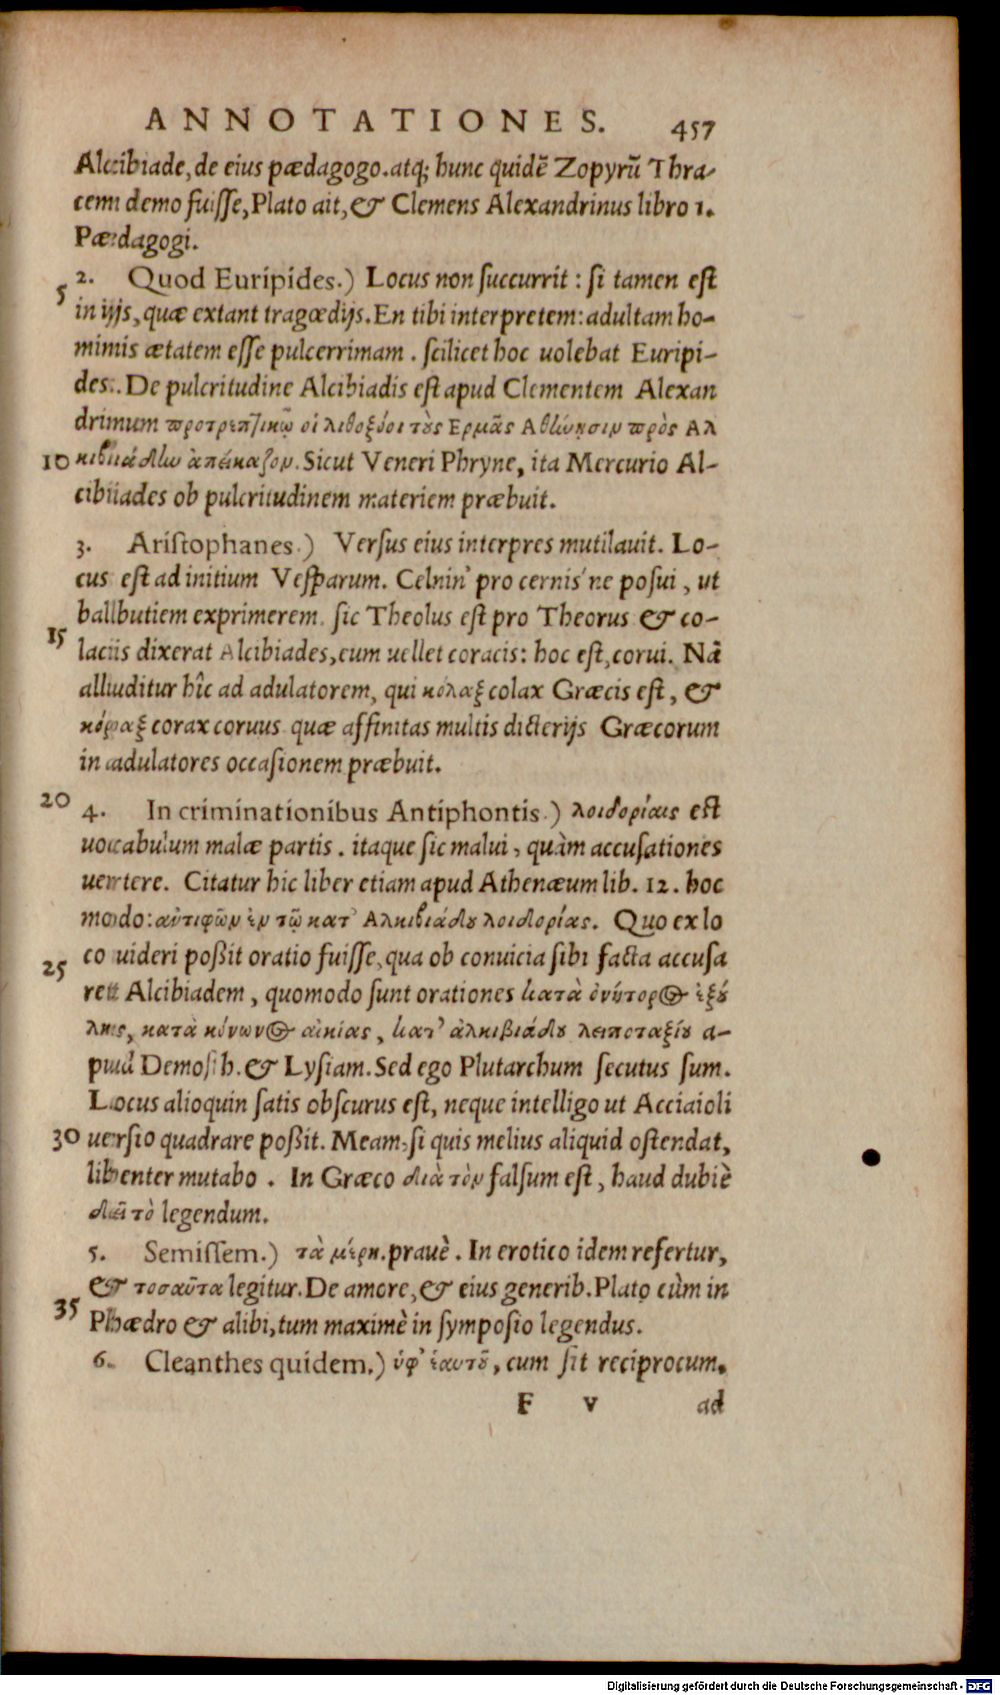 ANNOTATIONES. 457
Alcibiade, de eius pædagogo. atq; hunc quidē Zopyrū Thra-
cem domo fuisse, Plato ait, & Clemens Alexandrinus libro 1.
Pædagogi.
2. Quod Euripides.) Locus non succurrit: si tamen est
5
in ijs, quæ extant tragœdijs. En tibi interpretem: adultam ho-
minis ætatem esse pulcerrimam. scilicet hoc uolebat Euripi-
des. De pulcritudine Alcibiadis est apud Clementem Alexan
drinum προτρεπτικῷ οἱ λιθοξόοι τοὺς Ερμᾶς Αθήνησιν πρὸς Αλ
10 κιβιάδην ἀπείκαζον. Sicut Veneri Phryne, ita Mercurio Al-
cibiades ob pulcritudinem materiem præbuit.
3. Aristophanes.) Versus eius interpres mutilauit. Lo-
cus est ad initium Vesparum. Celnin' pro cernis'ne posui, ut
balbutiem exprimerem. sic Theolus est pro Theorus & co-
15
lacis dixerat Alcibiades, cum uellet coracis: hoc est, corui. Nā
alluditur hîc ad adulatorem, qui κόλαξ colax Græcis est, &
κόραξ corax coruus. quæ affinitas multis dicterijs Græcorum
in adulatores occasionem præbuit.
20 4. In criminationibus Antiphontis.) λοιδορίαις est
uocabulum malæ partis. itaque sic malui, quàm accusationes
uertere. Citatur hic liber etiam apud Athenæum lib. 12. hoc
modo: ἀντιφῶν ἐν τῷ κατ' Αλκιβιάδου λοιδορίας. Quo ex lo
co uideri poßit oratio fuisse, qua ob conuicia sibi facta accusa
25
ret Alcibiadem, quomodo sunt orationes κατὰ ὀνήτορος ἐξού
λης, κατὰ κόνωνος αἰκίας, κατ' ἀλκιβιάδου λειποταξίου a-
pud Demosth. & Lysiam. Sed ego Plutarchum secutus sum.
Locus alioquin satis obscurus est, neque intelligo ut Acciaioli
30 uersio quadrare poßit. Meam, si quis melius aliquid ostendat,
libenter mutabo. In Græco διὰ τὸν falsum est, haud dubiè
δεῖ τὸ legendum.
5. Semissem.) τὰ μέρη. prauè. In erotico idem refertur,
& τοσαῦτα legitur. De amore, & eius generib. Plato cùm in
35
Phædro & alibi, tum maximè in symposio legendus.
6. Cleanthes quidem.) ὑφ' ἑαυτοῦ, cum sit reciprocum.
F v ad
Digitalisierung gefördert durch die Deutsche Forschungsgemeinschaft - DFG